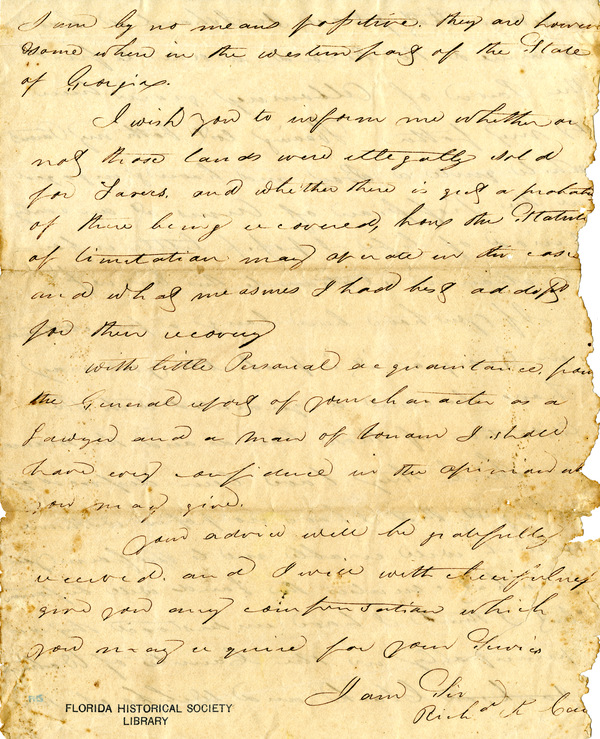 I am by no means positive. they are howev
some where in the western part of the State
of Georgia.
I wish you to inform me whether or
not those lands were illegally sold
for Taxes. and whether there is yet a probabi
of there being recovered, how the Statute
of limitation may operate in the case
and what measures I had best addopt
for their recovery
with little Personal acquaintance. from
the General report of your character as a
Lawyer and a man of honour I shall
have every confidence in the opinion wh
you may give.
your advice will be gratefully
received. and I will with cheerfulness
give you any compensation which
you may require for your Services
I am Sir
Richd K Ca
FLORIDA HISTORICAL SOCIETY
LIBRARY